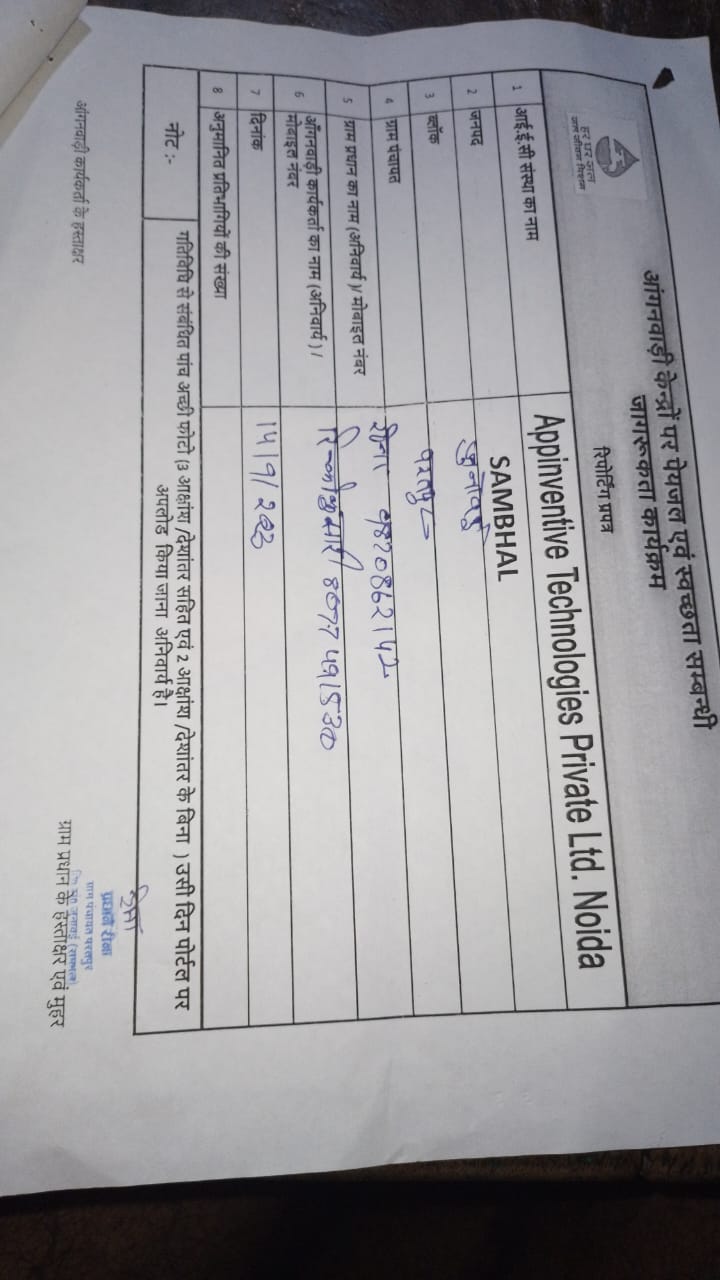 हर घर जल
जल जीवन मिशन
आंगनवाड़ी केन्द्रों पर पेयजल एवं स्वच्छता सम्बन्धी
जागरूकता कार्यक्रम
रिपोर्टिंग प्रपत्र
1 आई.ई.सी संस्था का नाम Appinventive Technologies Private Ltd. Noida
2 जनपद SAMBHAL
3 ब्लॉक जुनावई
4 ग्राम पंचायत परतापुर
5 ग्राम प्रधान का नाम (अनिवार्य)/ मोबाइल नंबर रीना
6 आँगनवाड़ी कार्यकर्ता का नाम (अनिवार्य ) /
मोबाइल नंबर
7 दिनांक 14/9/2023
8 अनुमानित प्रतिभागियों की संख्या
नोट :- गतिविधि से संबंधित पांच अच्छी फोटो (3 आक्षांश /देशांतर सहित एवं 2 आक्षांश /देशांतर के बिना ) उसी दिन पोर्टल पर
अपलोड किया जाना अनिवार्य है।
रीना
श्रीमती रीना
ग्राम पंचायत
आंगनवाड़ी कार्यकर्ता के हस्ताक्षर
ग्राम प्रधान के हस्ताक्षर एवं मुहर